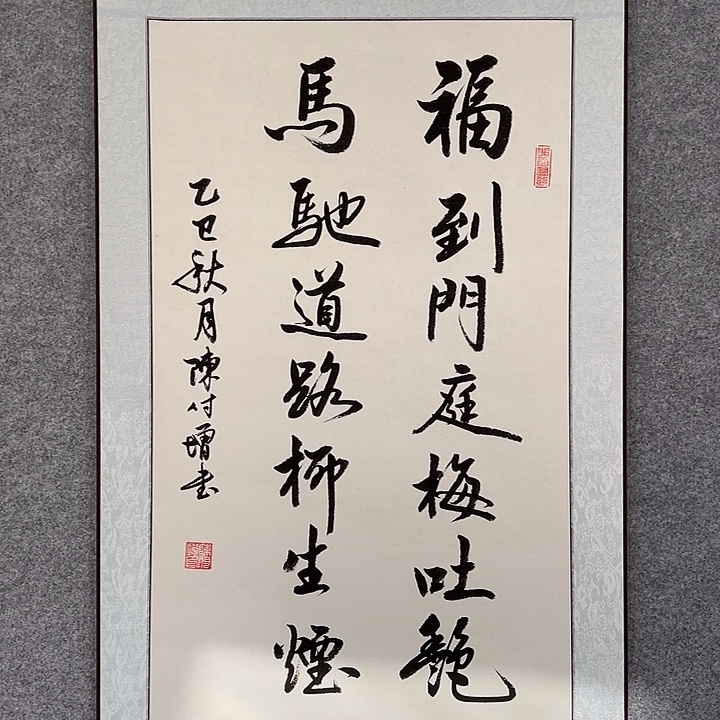 福到門庭梅吐艶
馬馳道路柳生煙
乙巳秋月陳付增书